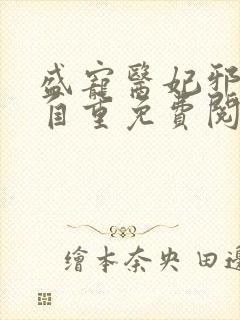 盛寵醫妃邪
自重免費閱
繪本奈央 田邊